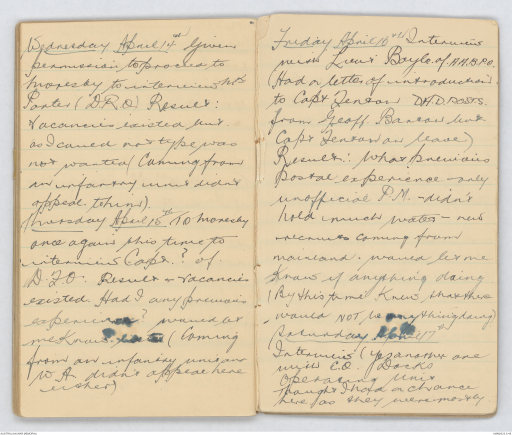 Wednesday April 14th Given
permission to proceed to
Moresby to interview Mr
Porter (D.R.O) Result:
Vacancies existed but
as I caused not type was
not wanted (Coming from
an infantry unit didn't
appeal to him).
Thursday April 15th. To Moresby
once again this time to
interview Capt. ? of
D.F.O. Result - Vacancies
existed Had I any previous
experience? would let
me know (Coming
from an infantry unit and
W.A. didn't appeal here
either)
Friday April 16th Interview
with Lieut Boyle of A.H.B.P.O.
(Had a letter of introduction
to Capt Fenton DAD POSTS.
from Geoff Barrow but
Capt Fenton on leave)
Result: What previous
Postal experience - only
unofficial P.M. - didn't
hold much water - new
recruits coming from
mainland. would let me
know if anything doing
(By this time knew that there
would NOT be anything doing)
Saturday April 17th
Interview (yet another one
with C.O. Docks
Operating Unit
thought I had a chance
here as they were mostly